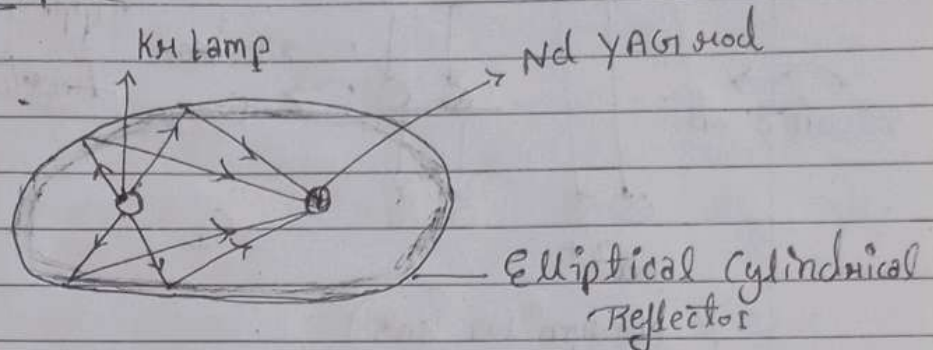 Kr lamp
Nd YAG rod
Elliptical Cylindrical
Reflector